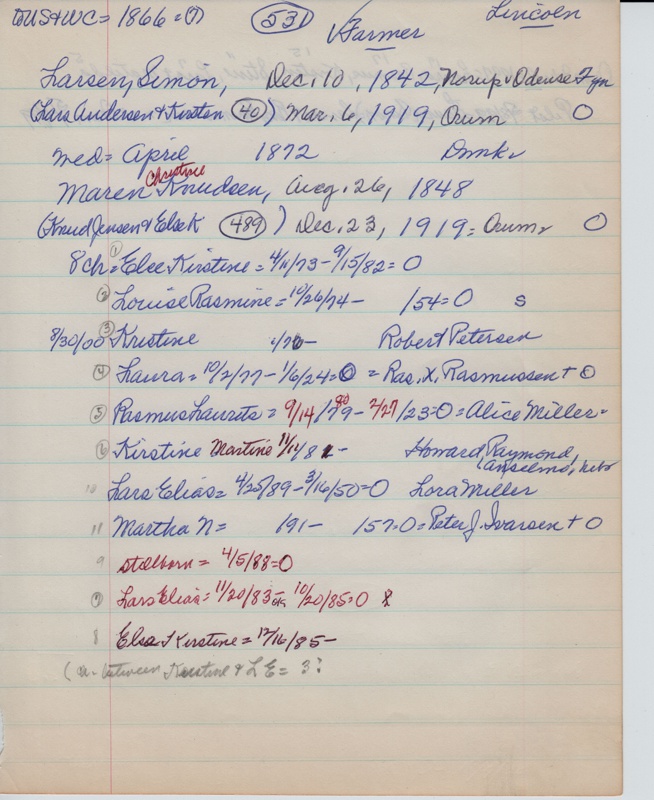 US & WC = 1866 = (7) 531 Lincoln
Farmer
Larsen, Simon, Dec. 10, 1842, Norup v Odense Fyn
(Lars Andersen & Kirsten (40)) Mar. 6, 1919, Orum O
med = April 1872 Dmk.
Christine
Maren Knudsen, Aug. 26, 1848
(Knud Jensen & Else K (489)) Dec. 23, 1919 = Orum O
8 ch = (1) Else Kirstine = 4/11/73 - 9/15/82 = O
(2) Louise Rasmine = 10/26/74 - /54 = O S
8/30/00 (3) Kristine Robert Petersen
(4) Laura = 10/2/77 - 1/6/24 = O = Ras. X. Rasmussen + O
(5) Rasmus Laurets = 9/14/79 80 - 2/27/23 = O = Alice Miller =
(6) Kirstine Martine - Howard, Raymond,
Anselmo, Nebr
10 Lars Elias = 4/25/89 - 3/16/50 = O Lora Miller
11 Martha N = 191 - 157 = O = Peter J. Ivarsen + O
9 stillborn = 4/5/88 = O
(7) Lars Elias = 11/20/83 - 10/20/85 = O
8 Elsa Kirstine = 12/16/85 -
between Kirstine & L E = 3?